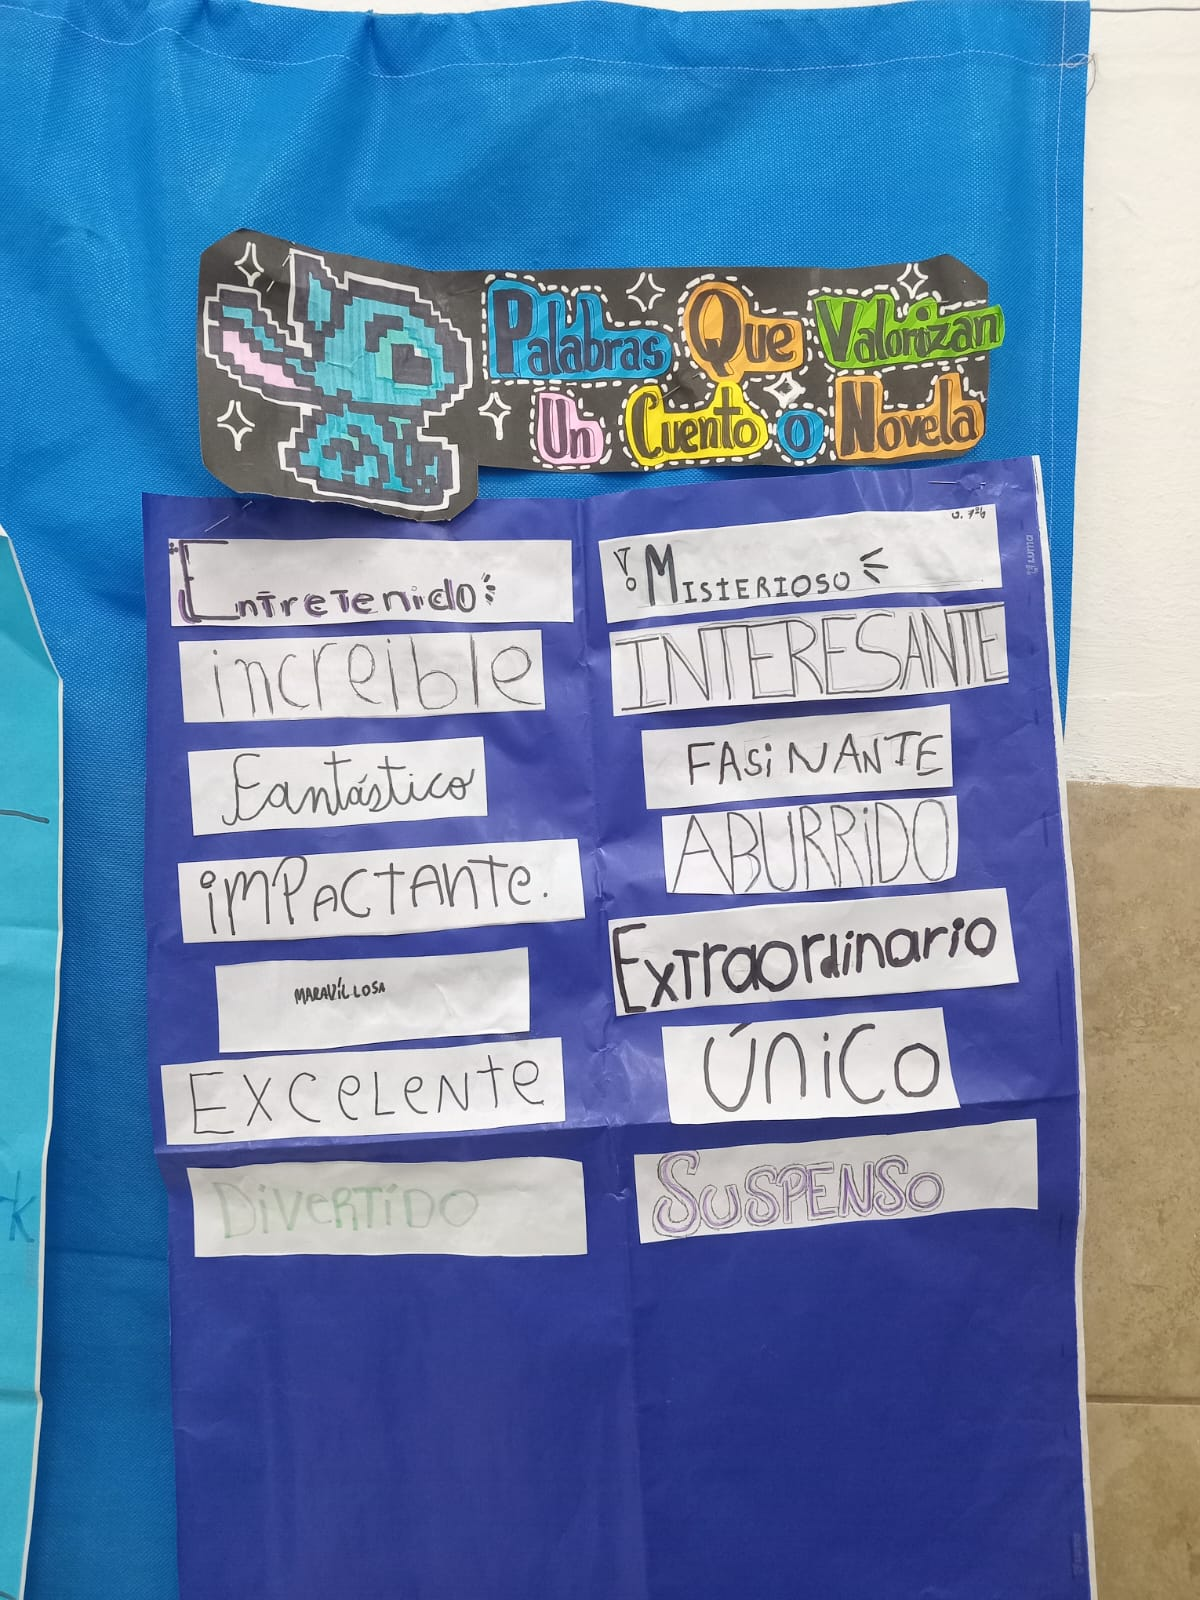 Palabras Que Valorizan
Un Cuento o Novela
Entretenido
increible
Fantástico
iMPACTANTE.
MARAVÍLLOSA
EXCELENTE
DIVERTÍDO
MISTERIOSO
INTERESANTE
FASINANTE
ABURRIDO
Extraordinario
ÚNiCO
SUSPENSO
LUMA